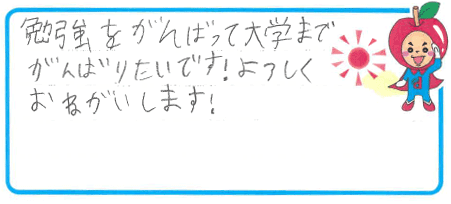 勉強をがんばって大学まで
がんばりたいです!よろしく
おねがいします!